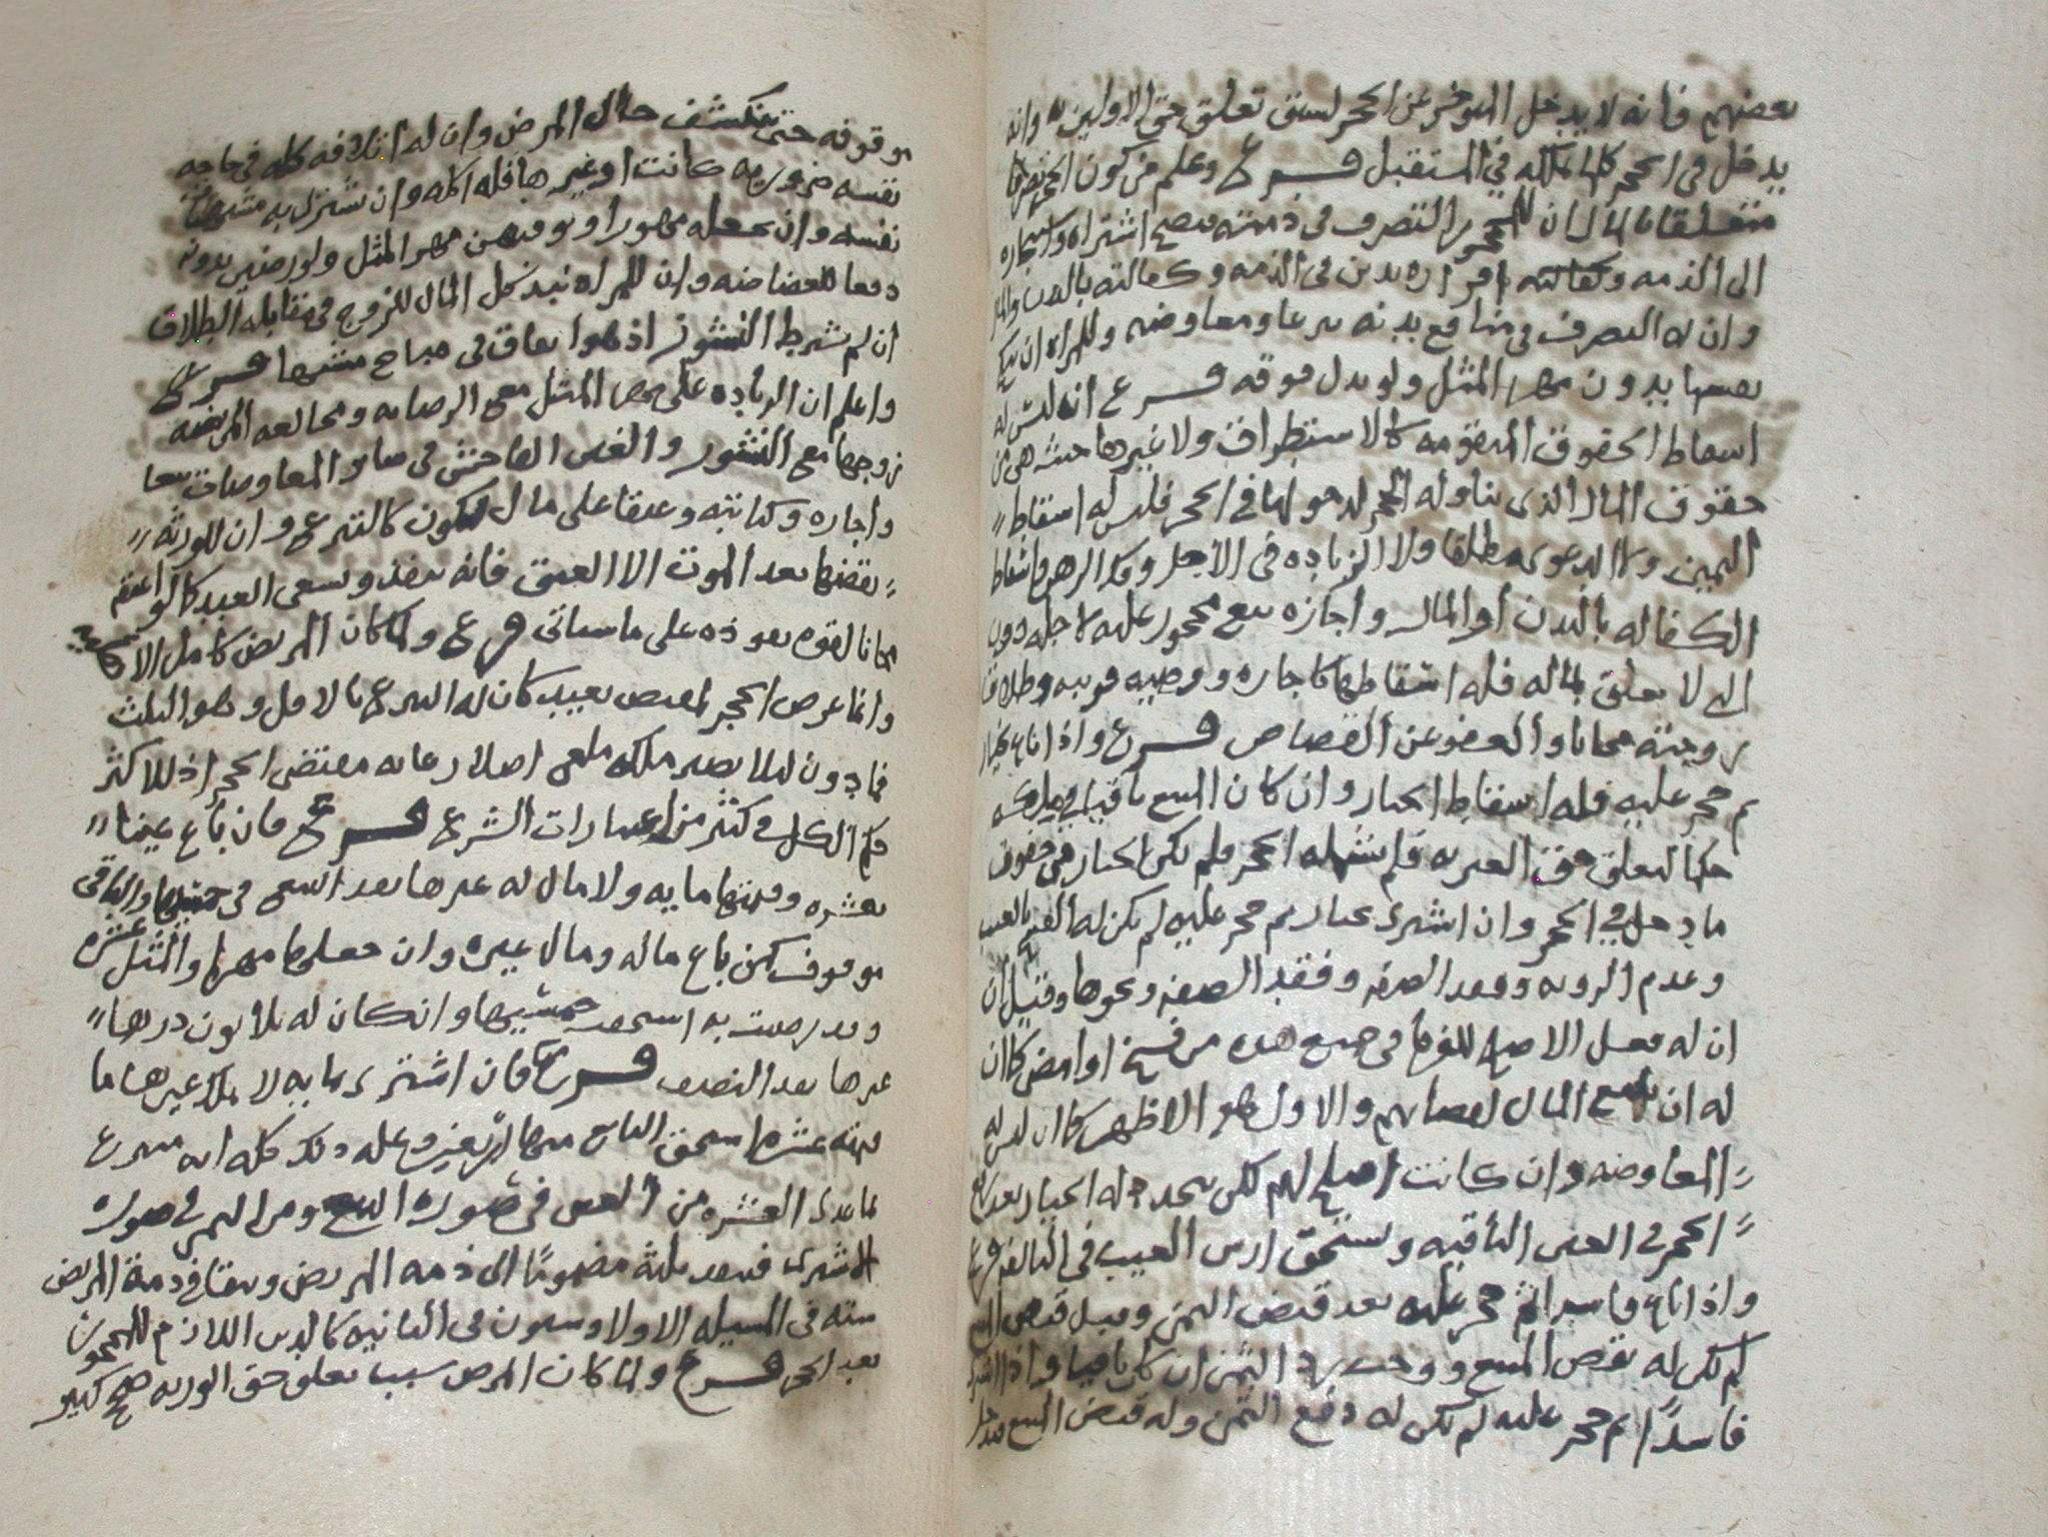 بعضهم فانه لا يدخل المؤخر عن الحجر لسبق تعلق حق الاولين به وانه
يدخل في الحجر كلما تملكه في المستقبل فرع وعلم من كون الحجر
متعلقا بالمال ان للمحجور التصرف في ذمته فيصح اشتراه واستجاره
الى الذمه وكفالته اقراره بدين في الذمه وكفالته بالبدن والمال
وان له التصرف في منافع بدنه تبرعا ومعاوضه وللمراه ان تنكح
نفسها بدون مهر المثل ولو بدل فوقه فرع انه ليس له
اسقاط الحقوق المتقومه كالاستطراق ولا غيرها حيث هي من
حقوق المال الذي تناوله الحجر لدخولها في الحجر فليس له اسقاط
اليمين ولا الدعوى مطلقا ولا الزياده في الاجل وفك الرهن واسقاط
الكفاله بالبدن او المال واجازه بيع محجور عليه لاجله دون
التي لا تعلق بماله فله اسقاطها كاجاره ووصيه قريبه وطلاق
زوجته مجانا والعفو عن القصاص فرع واذا باع بخيار
ثم حجر عليه فله اسقاط الخيار وان كان المبيع باقيا في ملكه
حكما لتعلق حق الغير به فلم يشمله الحجر فلم يكن الخيار من حقوق
ما دخل في الحجر وان اشترى بخيار ثم حجر عليه لم يكن له الفسخ بالعيب
وعدم الرويه وفقد الصفه ونحوها وقيل ان
ان له فعل الاصلح للغرما في جميع هذه من فسخ او امضى كما ان
له ان يبيع المال لقضائهم والاول هو الاظهر كما ان ليس له
المعاوضه وان كانت اصلح لهم لكن يتجدد له الخيار بعد رفع
الحجر في العين الباقيه ويستحق ارش العيب في التالفه فرع
واذا باع فاسدا ثم حجر عليه بعد قبض الثمن وقبل قبض المبيع
لم يكن له نقض المبيع ووجب رد الثمن ان كان باقيا واذا اشترى
فاسدا ثم حجر عليه لم يكن له دفع الثمن وله قبض المبيع فيدخل
موقوفه حتى ينكشف حال المرض وان له اتلافه كله في حاجه
نفسه ضروريه كانت او غيرها فله اكله وان يشتري به مشتهيات
نفسه وان يجعله مهورا ويوفيهن مهر المثل ولو رضين بدونه
دفعا للغضاضه وان للمراه تبذل كل المال للزوج في مقابله الطلاق
ان لم نشرط النشوز اذ هو انفاق في مباح مشتهيا فرع
واعلم ان الزياده على مهر المثل مع الرضا به ومخالعه المريضه
زوجها مع النشوز والغبن الفاحش في ساير المعاوضات بيعا
واجاره وكتابه وعتقا على مال يكون كالتبرع وان للورثه
نقضها بعد الموت الا العتق فانه ينفذ ويسعى العبد كما لو اعتقه
مجانا لقوه نفوذه على ما سياتي فرع ولما كان المريض كامل الاراده
وانما عرض الحجر كان له التبرع بالاقل وهو الثلث
فما دون لئلا يصير ملكه ملغي اصلا رعايه مقتضى الحجر اذ للاكثر
حكم الكل في كثير من اعتبارات الشرع فرع فان باع عينا
بعشره وقيمتها مايه ولا مال له غيرها نفذ البيع في خمسيها والباقي
موقوف كمن باع ماله ومال غيره وان جعلها مهرا والمثل عشره
وقد رضيت به استحقت خمسيها وان كان له ثلاثون درهما
غيرها نفذ النصف فرع فان اشترى بمايه لا يملك غيرها ما
قيمته عشره استحق البايع منها اربعين وعلة ذلك كله انه متبرع
بما عدى العشره من العين في صوره البيع ومن الثمن في صوره
الشرى فينفذ ثلثه مضموما الى ذمه المريض ويبقا في ذمة المريض
سته في المسيله الاولا وستون في الثانيه كالدين اللازم للمحجور
بعد الحجر فرع ولما كان المرض سببا تعلق حق الورثه صح